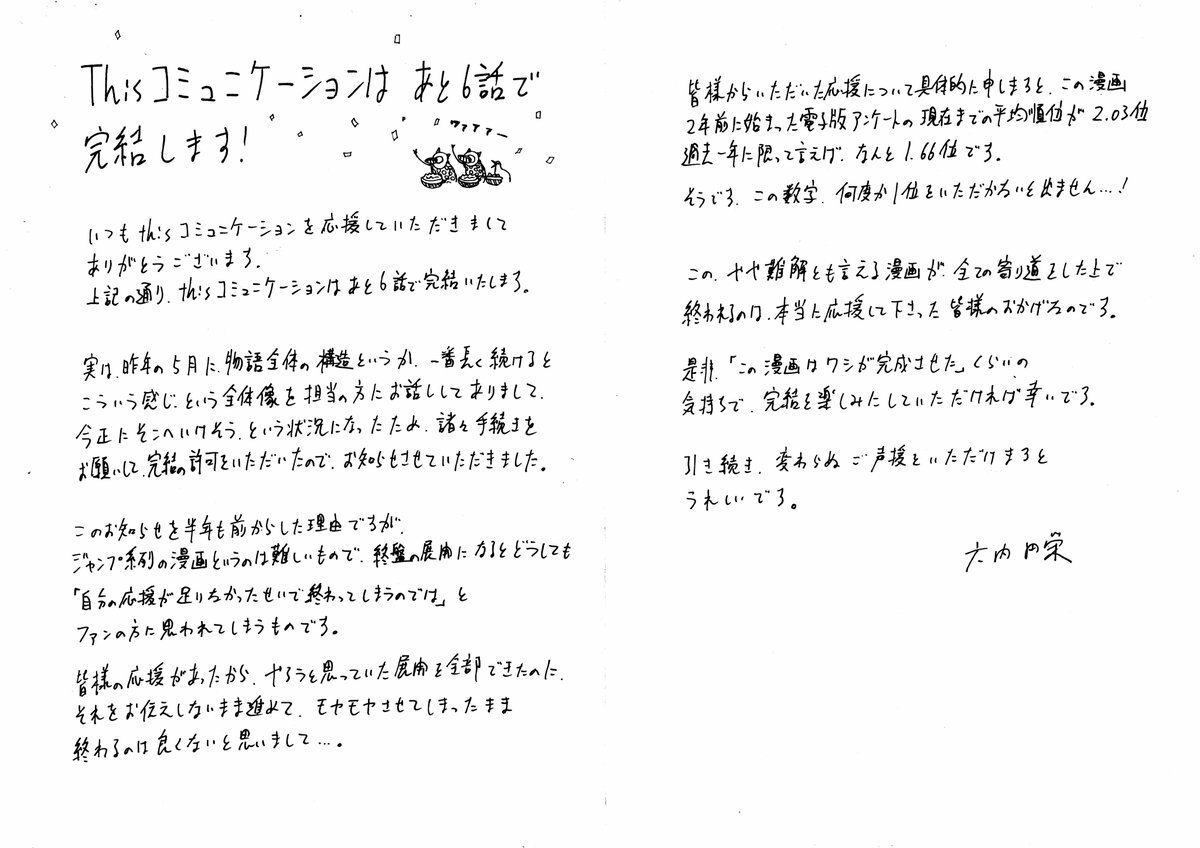 Thisコミュニケーションは あと6話で
完結します!
ワァァァァー
いつもthisコミュニケーションを応援していただきまして
ありがとうございます。
上記の通り、thisコミュニケーションはあと6話で完結いたします。
実は、昨年の5月に、物語全体の構造というか、一番長く続けると
こういう感じ、という全体像を担当の方にお話ししてありまして、
今正にそこへいけそう、という状況になったため、諸々手続きを
お願いして、完結の許可をいただいたので、お知らせさせていただきました。
このお知らせを半年も前からした理由ですが、
ジャンプ系列の漫画というのは難しいもので、終盤の展開になるとどうしても
「自分の応援が足りなかったせいで終わってしまうのでは」と
ファンの方に思われてしまうものです。
皆様の応援があったから、やろうと思っていた展開を全部できたのに、
それをお伝えしないまま進めて、モヤモヤさせてしまったまま
終わるのは良くないと思いまして…。
皆様からいただいた応援について具体的に申しますと、この漫画
2年前に始まった電子版アンケートの現在までの平均順位が2.03位
過去一年に限って言えば、なんと1.66位です。
そうです、この数字、何度か1位をいただかないと出ません…!
この、やや難解とも言える漫画が、全ての寄り道をした上で
終われるのは、本当に応援して下さった皆様のおかげなのです。
是非、「この漫画はワシが完成させた」くらいの
気持ちで、完結を楽しみにしていただければ幸いです。
引き続き、変わらぬご声援をいただけますと
うれしいです。
六内円栄